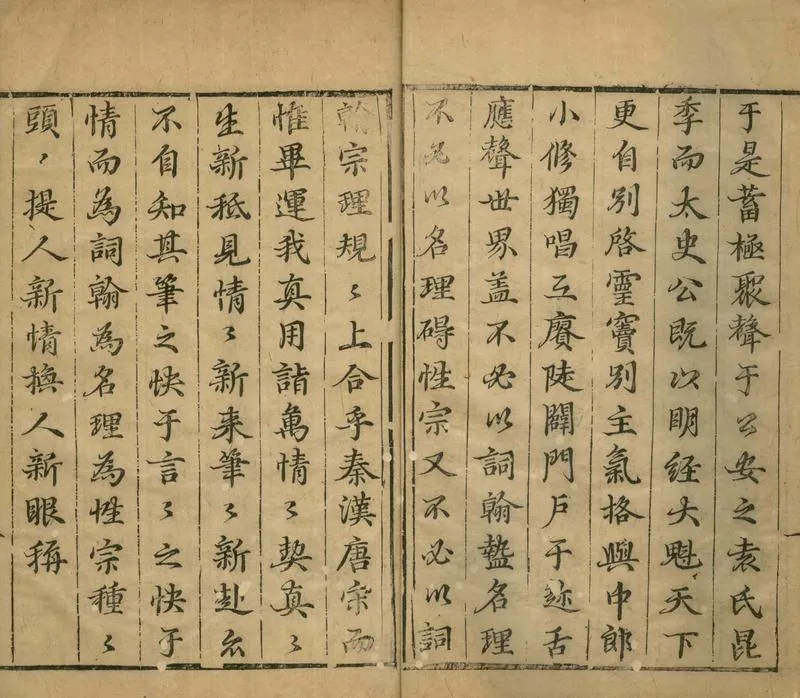 于是蓄極聚聲于公安之袁氏昆
季而太史公既以明經大魁天下
更自別啓靈竇別主氣格與中郎
小修獨唱互賡陡闢門戶于迹舌
應聲世界盖不必以詞翰蟄名理
不必以名理碍性宗又不必以詞
翰宗理規〻上合乎秦漢唐宋而
惟畢運我真用詣萬情〻契真〻
生新秪見情〻新來筆〻新赴亦
不自知其筆之快于言〻之快于
情而為詞翰為名理為性宗種〻
頭〻提人新情撫人新眼稱